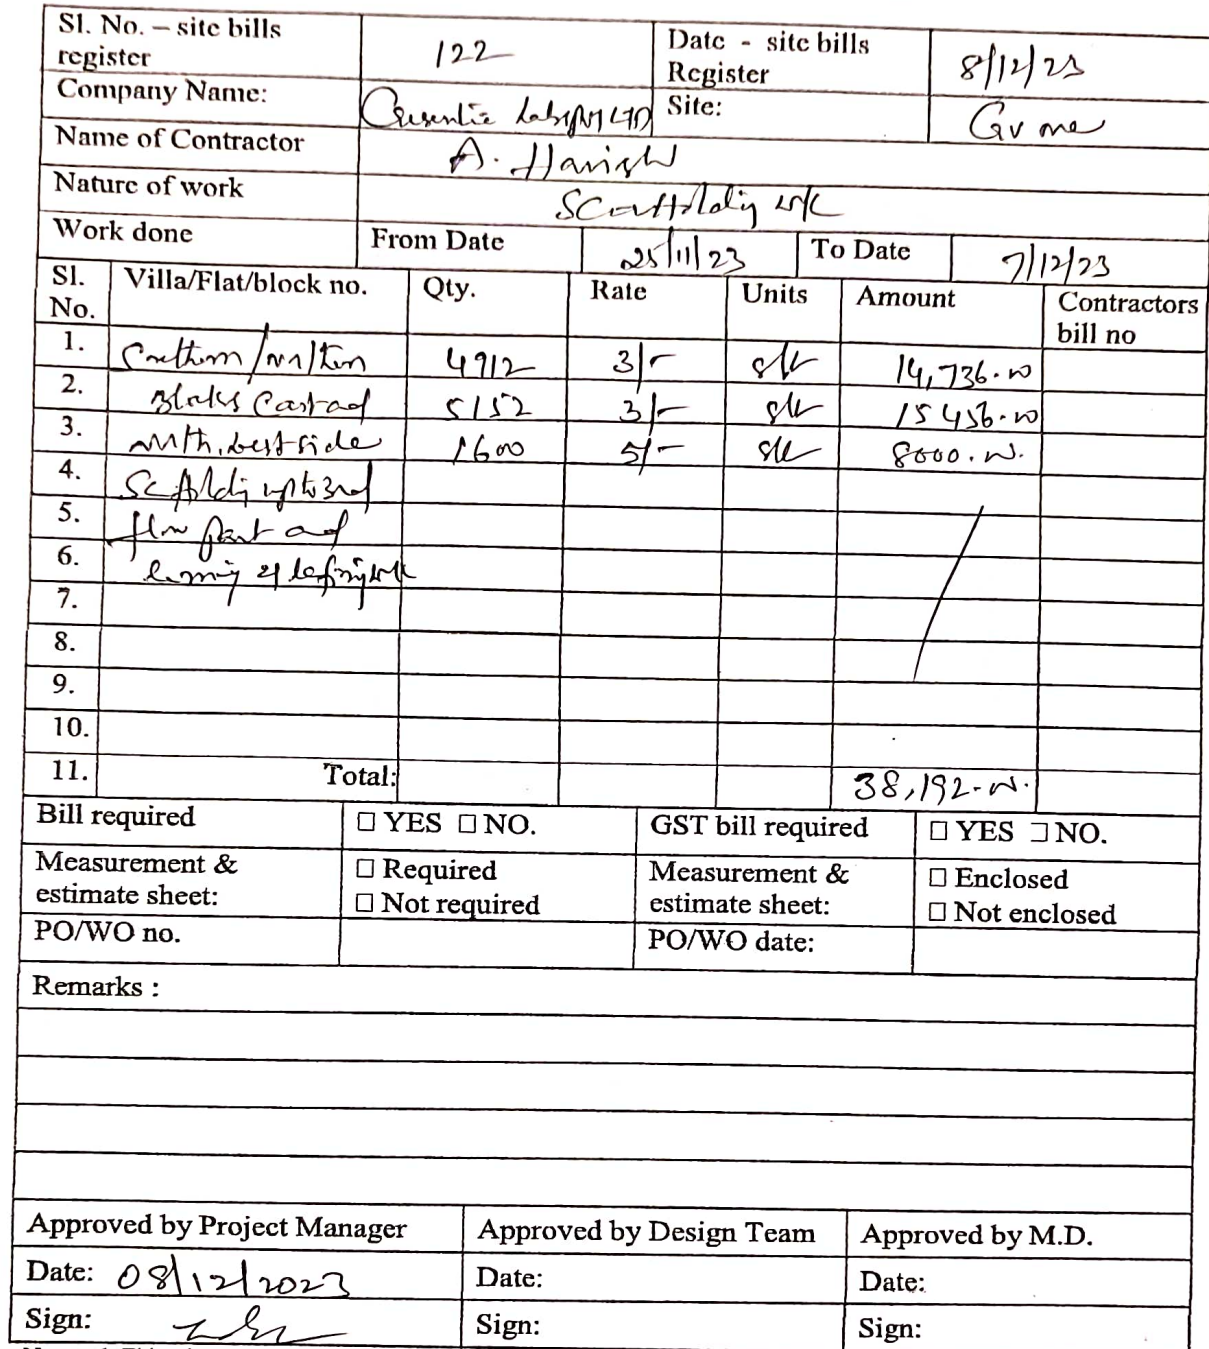 Sl. No. – site bills register 122 Date - site bills Register 8/12/23
Company Name: Labs Pvt LTD Site: Gv
Name of Contractor A. Harish
Nature of work Scaffolding
Work done From Date 25/11/23 To Date 7/12/23
Sl. No. Villa/Flat/block no. Qty. Rate Units Amount Contractors bill no
1. 4912 3/- sft 14,736.00
2. Blocks East and 5152 3/- sft 15456.00
3. side 1600 5/- sft 8000.00.
4. upto 3rd
5. and
6.
7.
8.
9.
10.
11. Total: 38,192.00.
Bill required ☐ YES ☐ NO. GST bill required ☐ YES ☐ NO.
Measurement & estimate sheet: ☐ Required ☐ Not required Measurement & estimate sheet: ☐ Enclosed ☐ Not enclosed
PO/WO no. PO/WO date:
Remarks :
Approved by Project Manager Approved by Design Team Approved by M.D.
Date: 08/12/2023 Date: Date:
Sign: Sign: Sign: